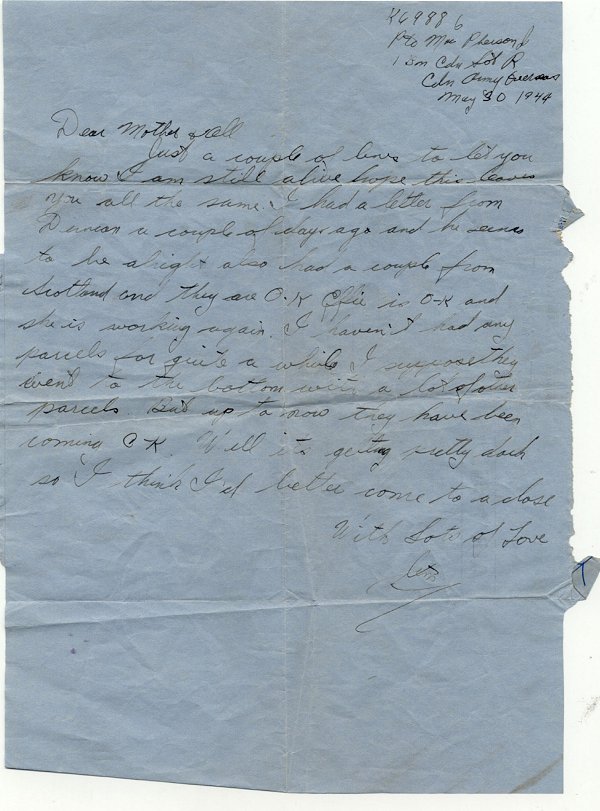 K69886
Pte MacPherson J
1 Bn Cdn Sct R
Cdn Army Overseas
May 30 1944
Dear Mother & All
Just a couple of lines to let you
know I am still alive hope this leaves
you all the same. I had a letter from
Duncan a couple of days ago and he seems
to be alright also had a couple from
Scotland and they are O-K Effie is O-K and
she is working again. I haven't had any
parcels for quite a while I suppose they
went to the bottom with a lot of other
parcels. But up to now they have been
coming O K. Well its getting pretty dark
so I think I'd better come to a close
With Lots of Love